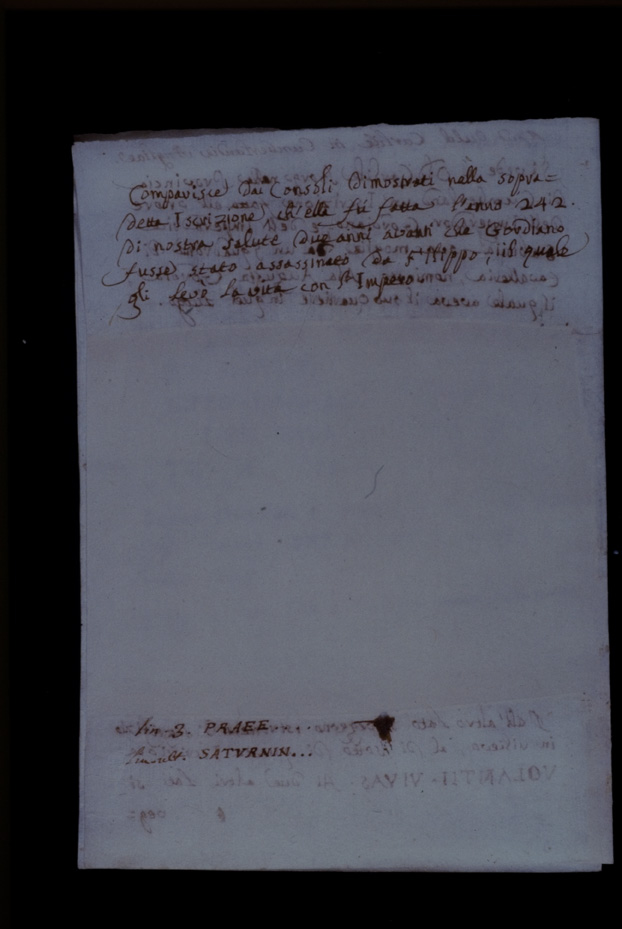 Comparisce dai Consoli dimostrati nella sopra=
detta Iscrizione, ch'ella fu fatta l'anno 242.
di nostra salute due anni avanti che Gordiano
fusse stato assassinato da Filippo, il quale
gli levò la vita con l'Impero.
lin. 3. PRAEE....
SATVRNIN...